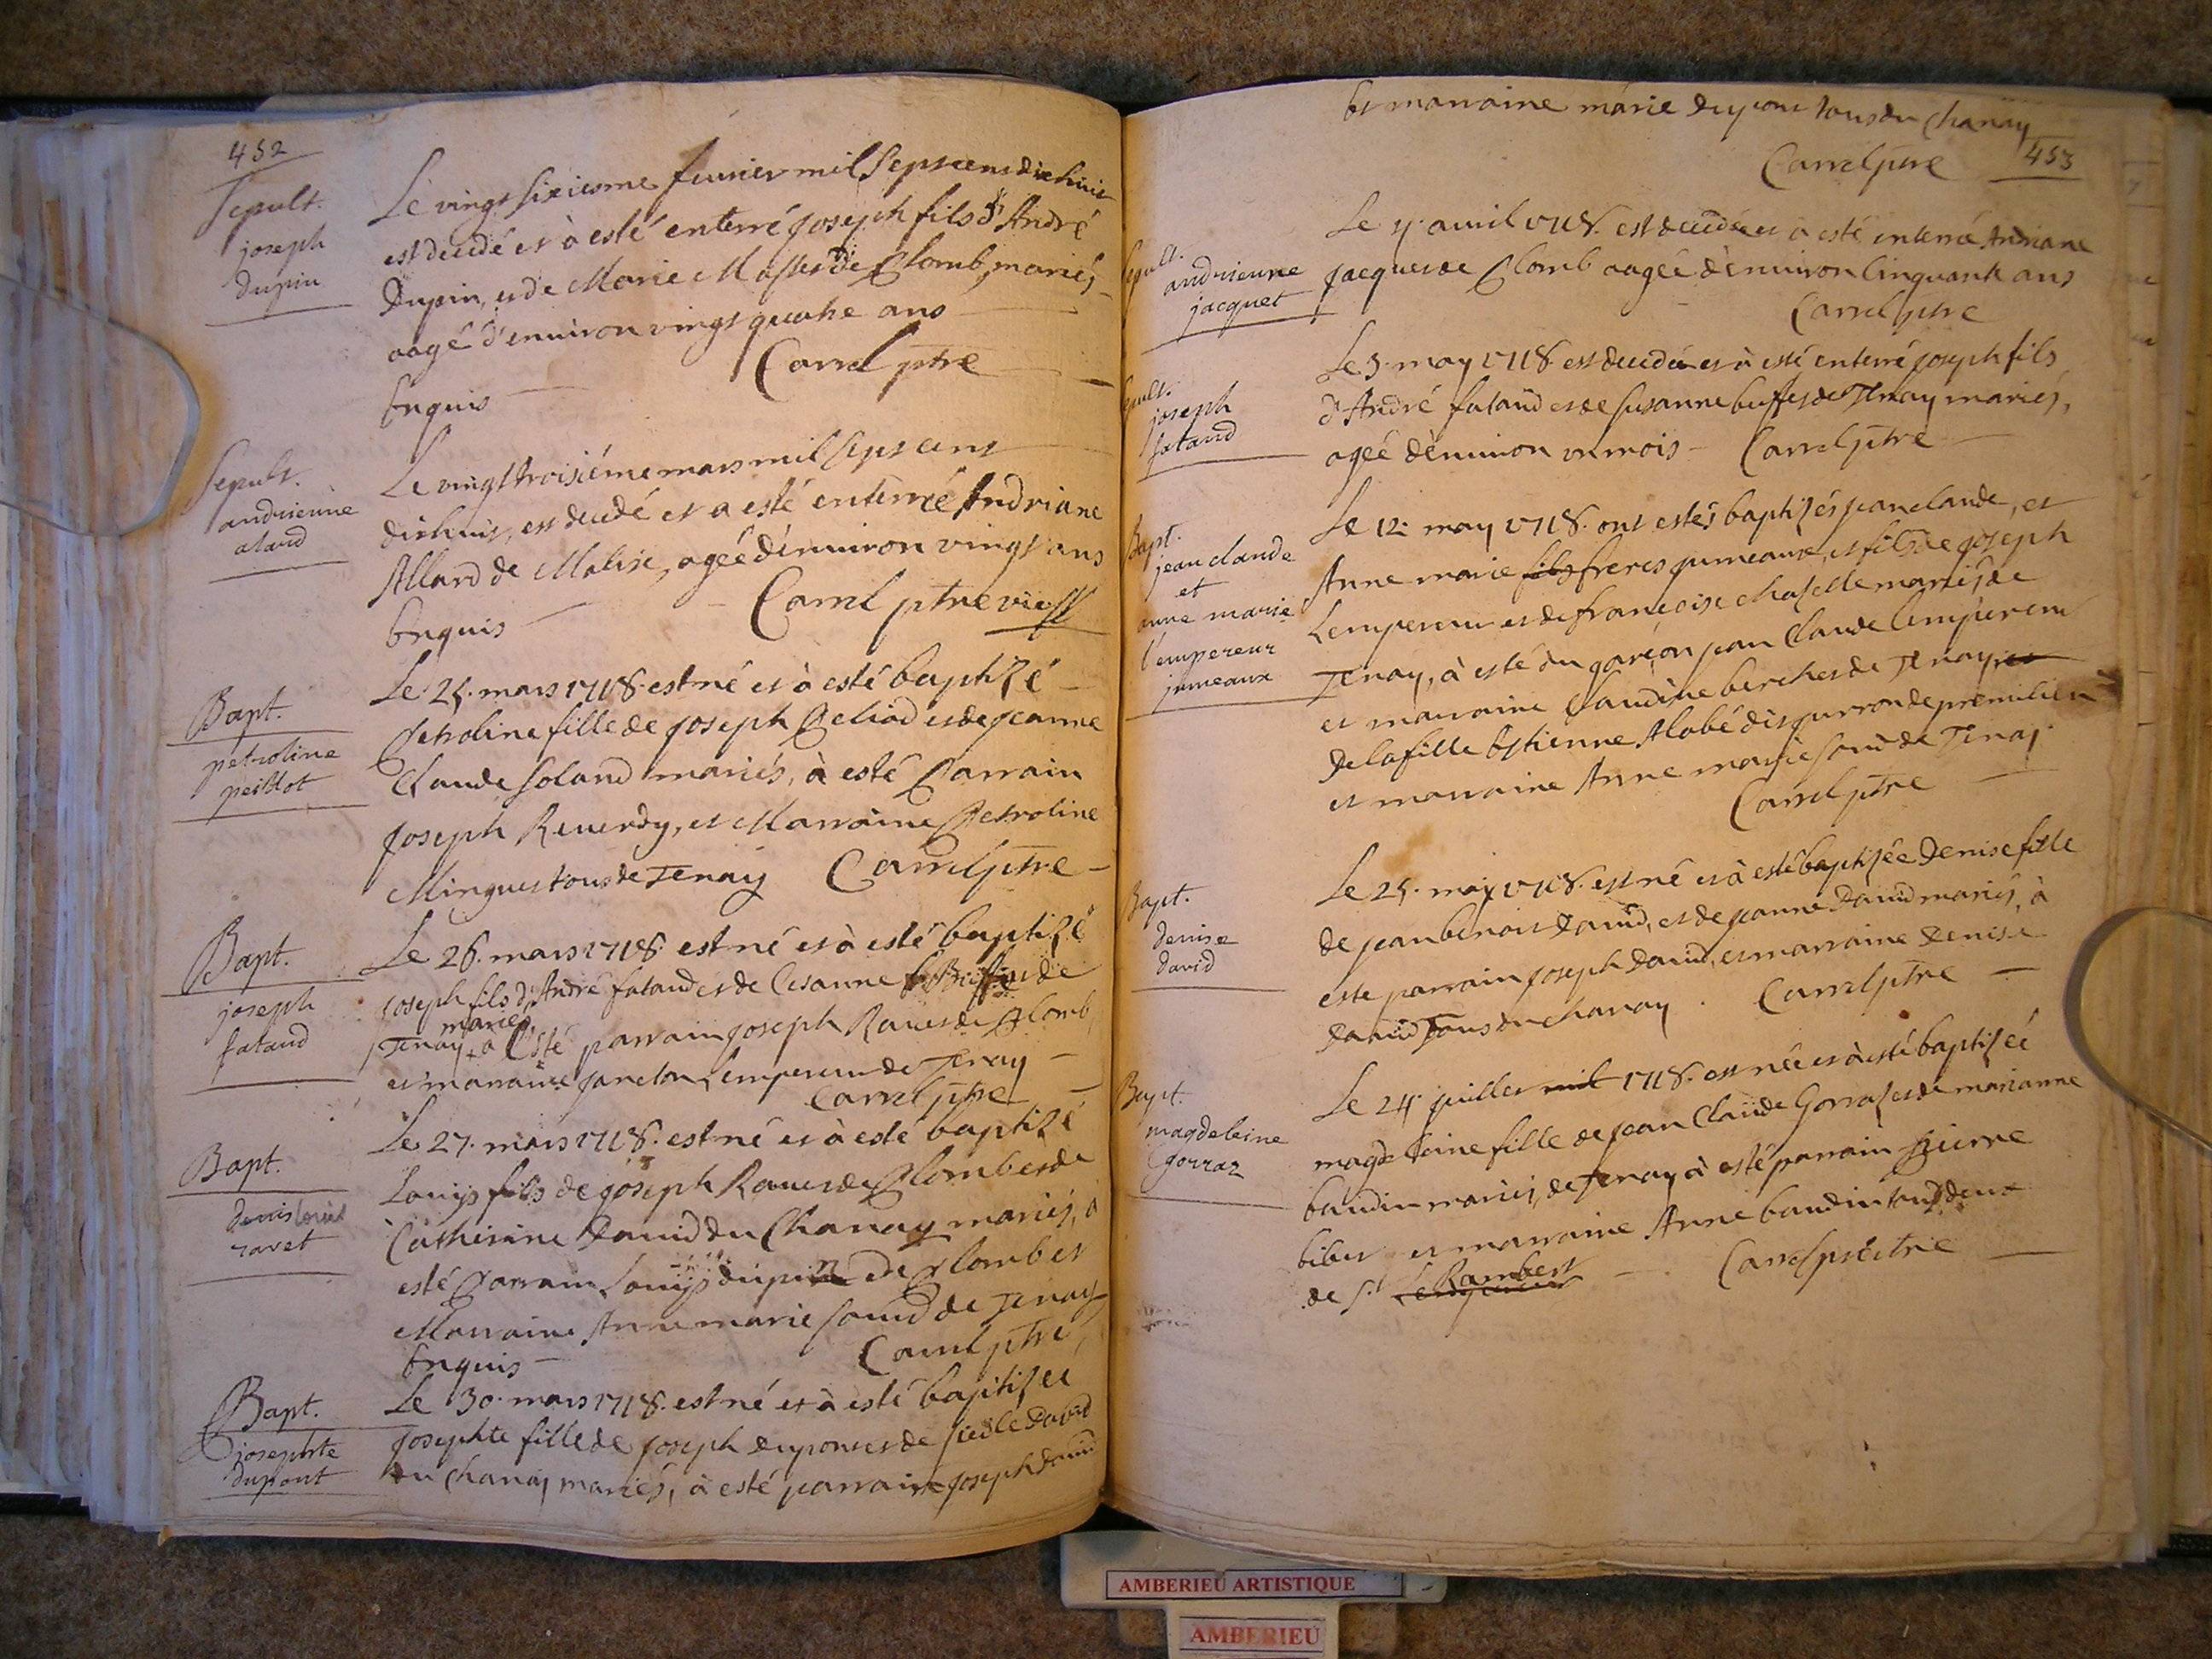 452
Sepult.
joseph
dupin
Le vingt sixiesme feurier mil sept cent dixhuit
est decedé et à esté enterré joseph fils d'André
Dupin, et de Marie de Plomb, mariés
aagé d'enuiron vingt quatre ans
Carrel ptre
Enquis
Sepult.
andrienne
alard
Le vingt troisiéme mars mil sept cent
dixhuit, est decedé et a esté enterré Andriane
Allard de Malix, agée d'enuiron vingt ans
Enquis
Carrel ptre vic
Bapt.
petroline
peillot
Le 25. mars 1718. est né et à esté baptizé
Petroline fille de joseph et de jeanne
Claude Soland mariés, à esté Parrain
joseph Reuerdy, et Marraine Petroline
Minguet tous de Tenay Carrel ptre
Bapt.
joseph
fataud
Le 26. mars 1718. est né et à esté baptizé
joseph fils d'André fataud et de Susanne de
mariés
Tenay, a esté parrain joseph Rauet de Plomb
et marraine janeton Lempereur de Tenay
Carrel ptre
Bapt.
denis louis
ravet
Le 27. mars 1718. est né et à esté baptizé
Louijs fils de joseph Rauet de Plomb et de
Catherine Dauid du Chanay mariés, à
esté Parrain Louijs dupin de Plomb et
Marraine Anne marie Sauid de Tenay
Enquis
Carrel ptre
Bapt.
josephte
dupont
Le 30. mars 1718. est né et à esté baptizée
josephte fille de joseph dupont et de David
du Chanay mariés, à esté parrain joseph dauid
et marraine marie dupont tous du Chanay
Carrel ptre 453
Sepult.
andrienne
jacquet
Le avril 1718. est decedée et à esté enterré Andriane
jacquet de Plomb aagée d'enuiron cinquante ans
Carrel ptre
Sepult.
joseph
fataud
Le 3. may 1718. est decedé et à esté enterré joseph fils
d'André fataud et de Susanne buffet de Tenay mariés,
agée d'enuiron un mois Carrel ptre
Bapt.
jean claude
et
anne marie
l'empereur
jumeaux
Le 12. may 1718. ont estés baptizés jean claude, et
Anne marie fils freres jumeaux, et fils de joseph
Lempereur et de françoise chaselle mariés de
Tenay, à esté du garçon jean Claude Lempereur
et marraine Claudine berchet de Tenay, et
De la fille Estienne Alabé dit de premilieu
et marraine Anne marie Sauid de Tenay
Carrel ptre
Bapt.
denise
david
Le 25. may 1718. est né et à esté baptizée Denise fille
de jean benoit Dauid, et de jeanne Dauid mariés, à
este parrain joseph Dauid, et marraine Denise
Dauid Tous du chanay. Carrel ptre
Bapt.
magdeleine
gorraz
Le 24. juillet mil 1718. est née et à esté baptizée
magdeleine fille de jean Claude Gorraz et de marianne
baudin mariés, de Tenay à esté parrain pierre
bibet et marraine Anne baudin tous deux
de St Rambert Carrel prestre
AMBERIEU ARTISTIQUE
AMBERIEU